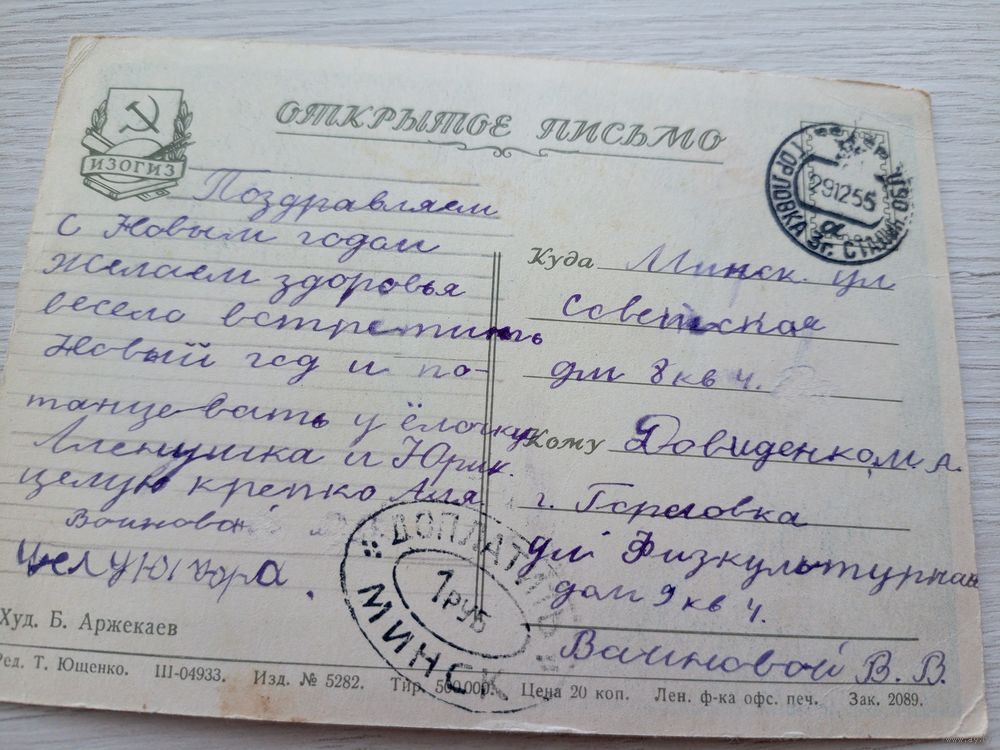 ОТКРЫТОЕ ПИСЬМО
ИЗОГИЗ
ГОРЛОВКА
291256
Поздравляем
с Новым годом
желаем здоровья
весело встретить
Новый год и по-
танцевать у ёлочки
Аленушка и Юрик.
целую крепко Аля
Воинова
целую Юра.
Куда Минск. ул
Советская
дм 8 кв 4.
Кому Довиденком А.
г. Горловка
ул Физкультурная
дом 9 кв 4.
Воиновой В. В.
ДОПЛАТИТЬ
1 РУБ
МИНСК
Худ. Б. Аржекаев
Ред. Т. Ющенко. Ш-04933. Изд. № 5282. Тир. 500.000. Цена 20 коп. Лен. ф-ка офс. печ. Зак. 2089.